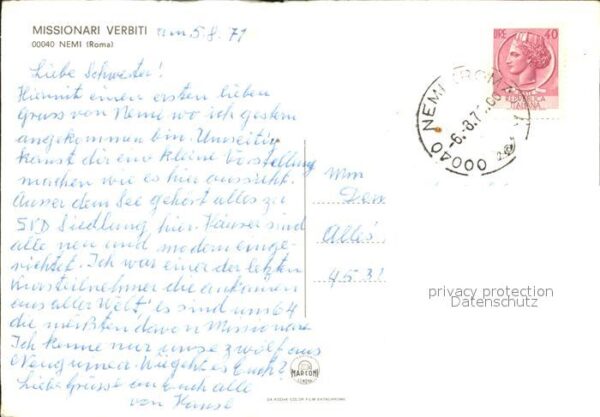 MISSIONARI VERBITI
00040 NEMI (Roma)
am 5.8.71
Liebe Schwester!
Hiermit einen ersten lieben
Gruss von Nemi wo ich gestern
angekommen bin. Umseitig
kannst dir eine kleine Vorstellung
machen wie es hier aussieht.
Ausser dem See gehört alles zu
SVD Siedlung hier. Häuser sind
alle neu und modern einge-
richtet. Ich war einer der letzten
Kursteilnehmer die ankamen
aus aller Welt, es sind um 64
die meißten davon Missionare
Ich kenne nur unse zwölf aus
Neuguinea. Wie geht es Euch?
Liebe Grüsse an Euch alle
von
LIRE 40
REPUBBLICA
ITALIANA
00040 NEMI
-6.8.7
Alles
4531
privacy protection
Datenschutz
MARTONI